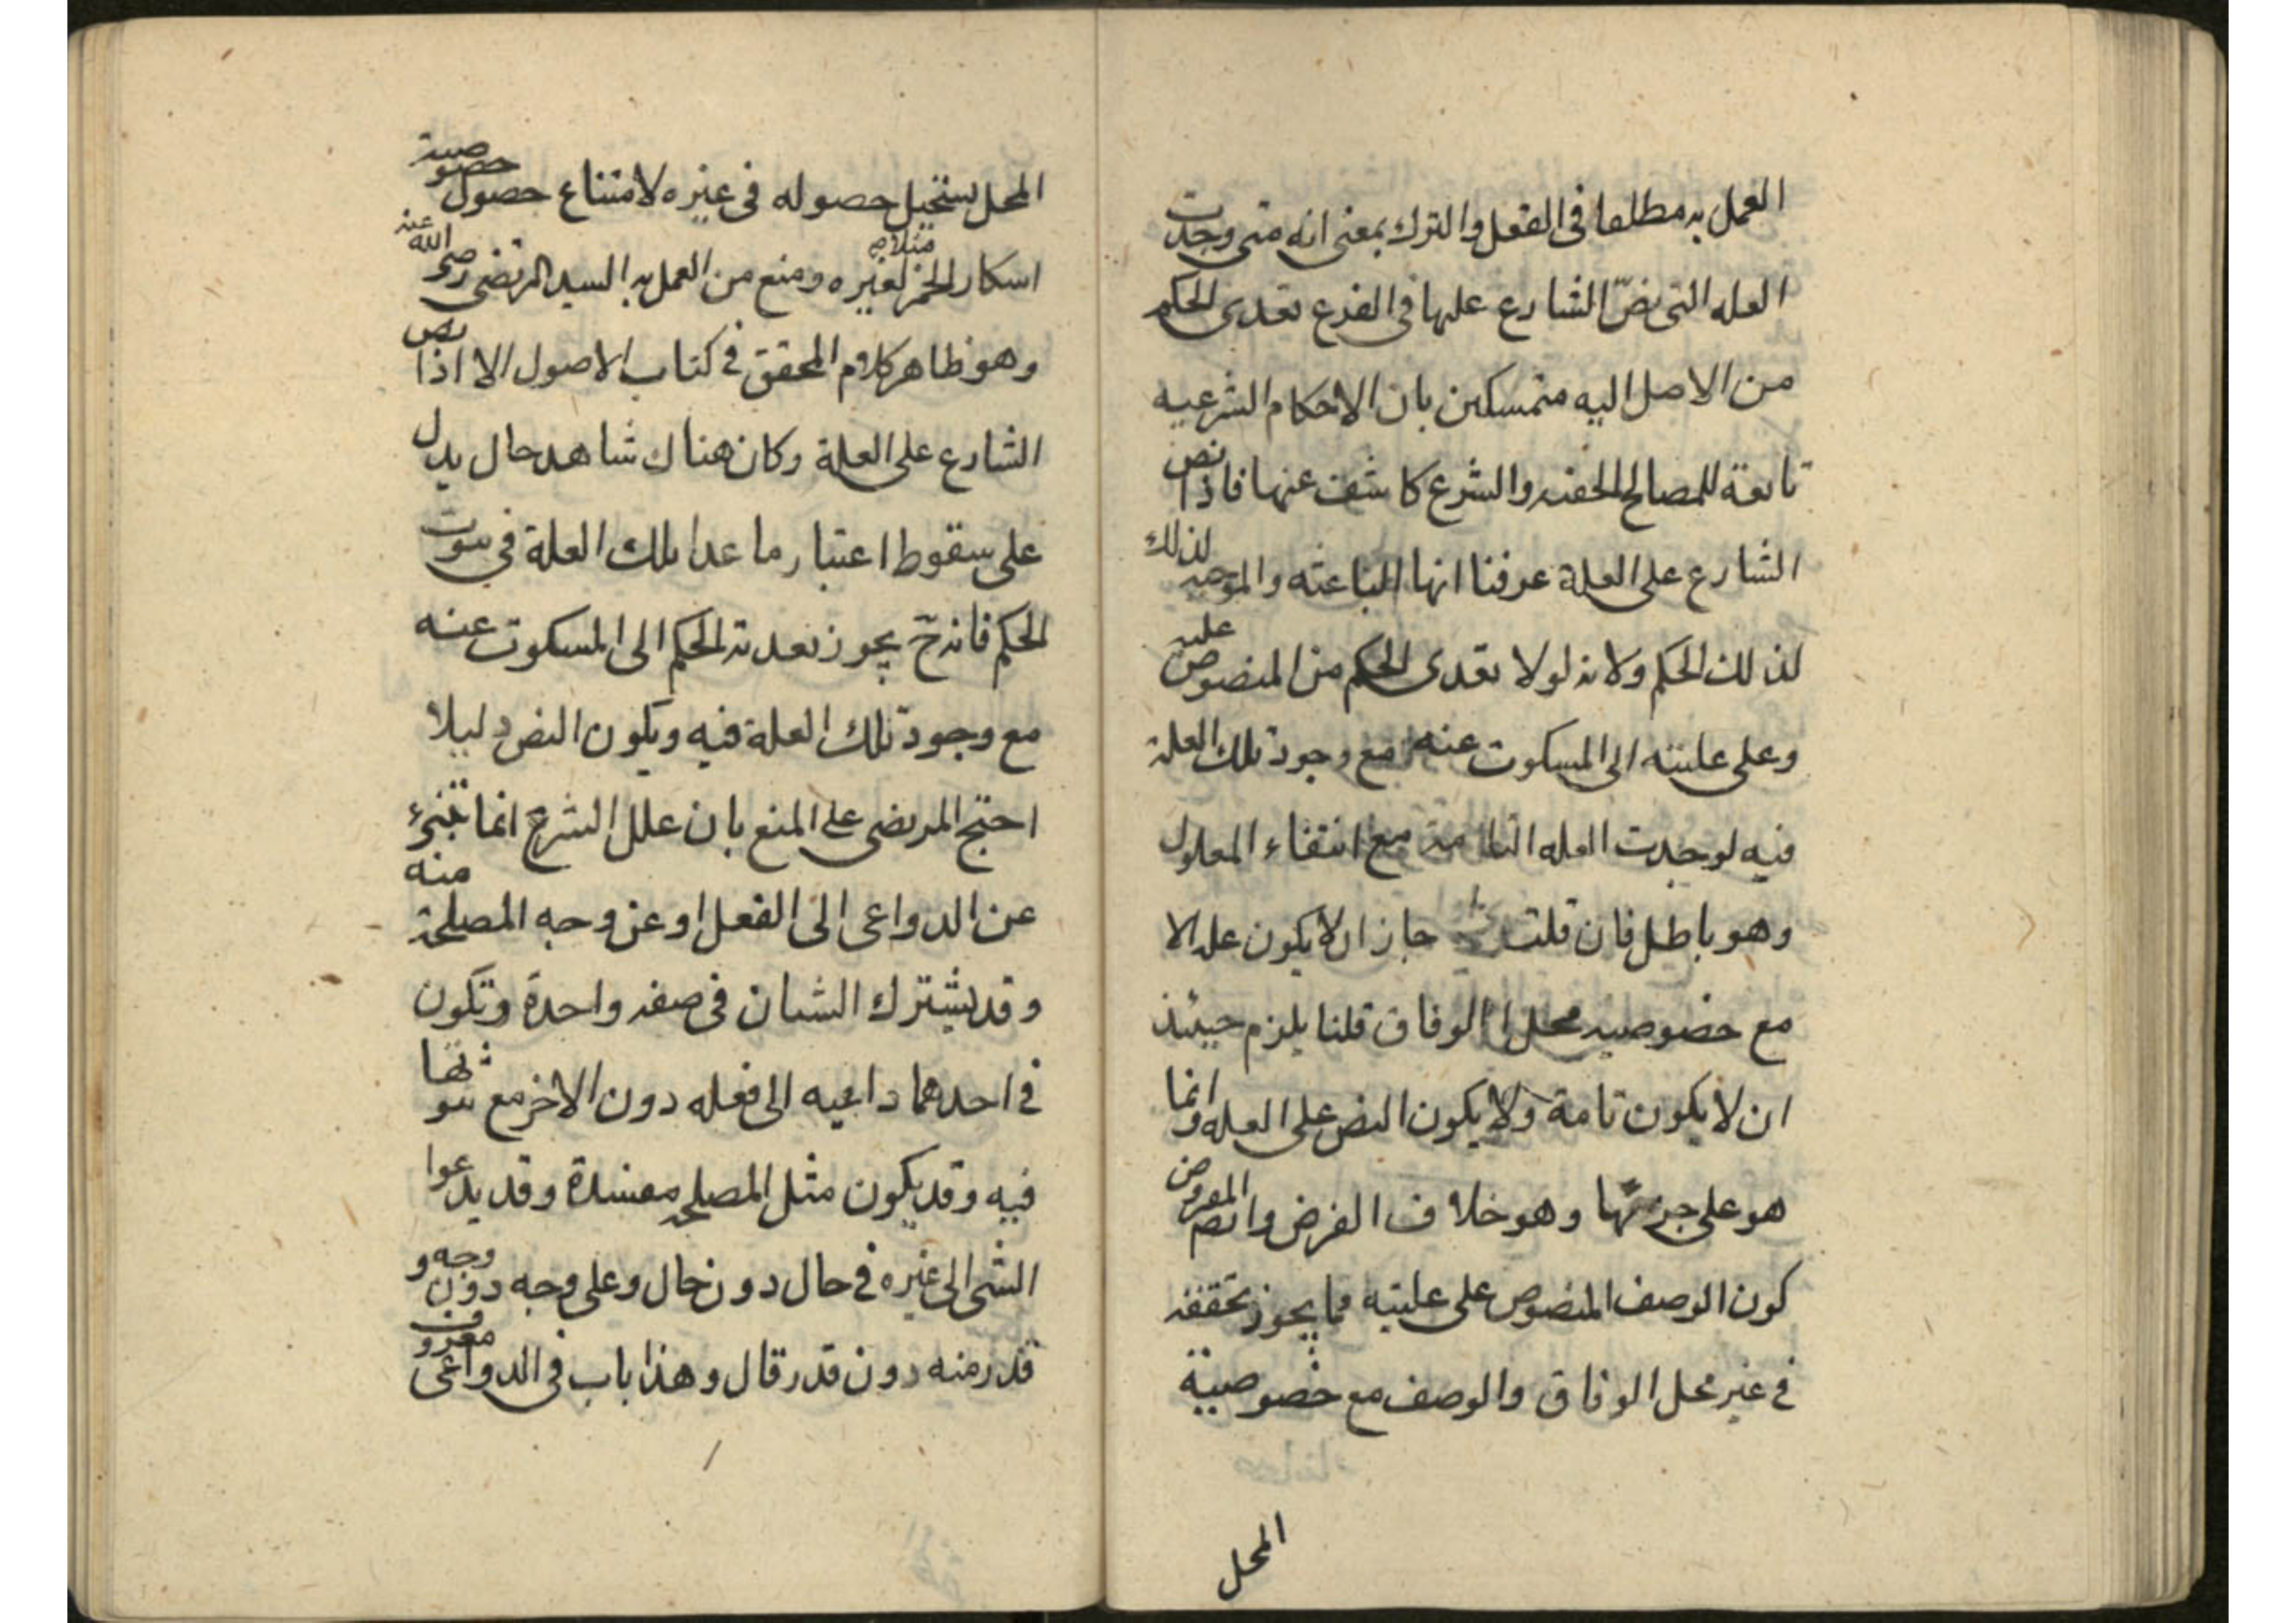 العمل به مطلقا فى الفعل والترك بمعنى انه متى وجدت
العله التى نصّ الشارع عليها فى الفرع تعدى الحكم
من الاصل اليه متمسكين بان الاحكام الشرعيه
تابعة للمصالح الخفيه والشرع كاشف عنها فاذا نص
الشارع على العلة عرفنا انها الباعثه والموجبه لذلك
لذلك الحكم ولانه لولا تعدى الحكم من المنصوص عليه
وعلى عليته الى المسكوت عنه مع وجود تلك العلة
فيه لوجدت العله التامة مع انتفاء المعلول
وهو باطل فان قلت جاز ان لا يكون عله الا
مع خصوصيه محل الوفاق قلنا يلزم حينئذ
ان لا يكون تامة ولا يكون النص على العله وانما
هو على جزئها وهو خلاف الفرض وايضم المفروض
كون الوصف المنصوص على عليته مما يجوز تحققه
فى غير محل الوفاق والوصف مع خصوصية
المحل
المحل يستحيل حصوله فى غيره لامتناع حصول خصوصية
اسكار الخمر مثلا لغيره ومنع من العمل به السيد المرتضى رضى الله عنه
وهو ظاهر كلام المحقق فى كتاب الاصول الا اذا نص
الشارع على العلة وكان هناك شاهد حال يدل
على سقوط اعتبار ما عدا تلك العلة فى ثبوت
الحكم فانه ح يجوز تعدية الحكم الى المسكوت عنه
مع وجود تلك العلة فيه ويكون النص دليلا
احتج المرتضى على المنع بان علل الشرع انما تنبئ
عن الدواعى الى الفعل او عن وجه المصلحة منه
وقد يشترك الشيان فى صفه واحدة وتكون
فى احدهما داعيه الى فعله دون الاخر مع ثبوتها
فيه وقد يكون مثل المصلحه مفسدة وقد يدعوا
الشى الى غيره فى حال دون حال وعلى وجه دون وجه و
قدر منه دون قدر قال وهذا باب فى الدواعى معروف